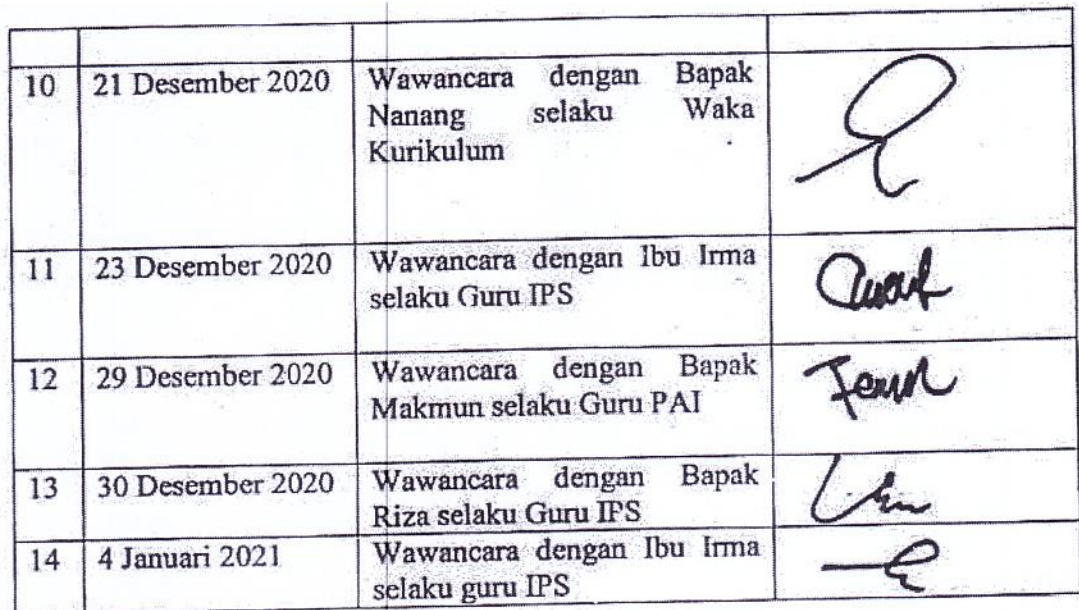 10 21 Desember 2020 Wawancara dengan Bapak
Nanang selaku Waka
Kurikulum
11 23 Desember 2020 Wawancara dengan Ibu Irma
selaku Guru IPS
12 29 Desember 2020 Wawancara dengan Bapak
Makmun selaku Guru PAI
13 30 Desember 2020 Wawancara dengan Bapak
Riza selaku Guru IPS
14 4 Januari 2021 Wawancara dengan Ibu Irma
selaku guru IPS